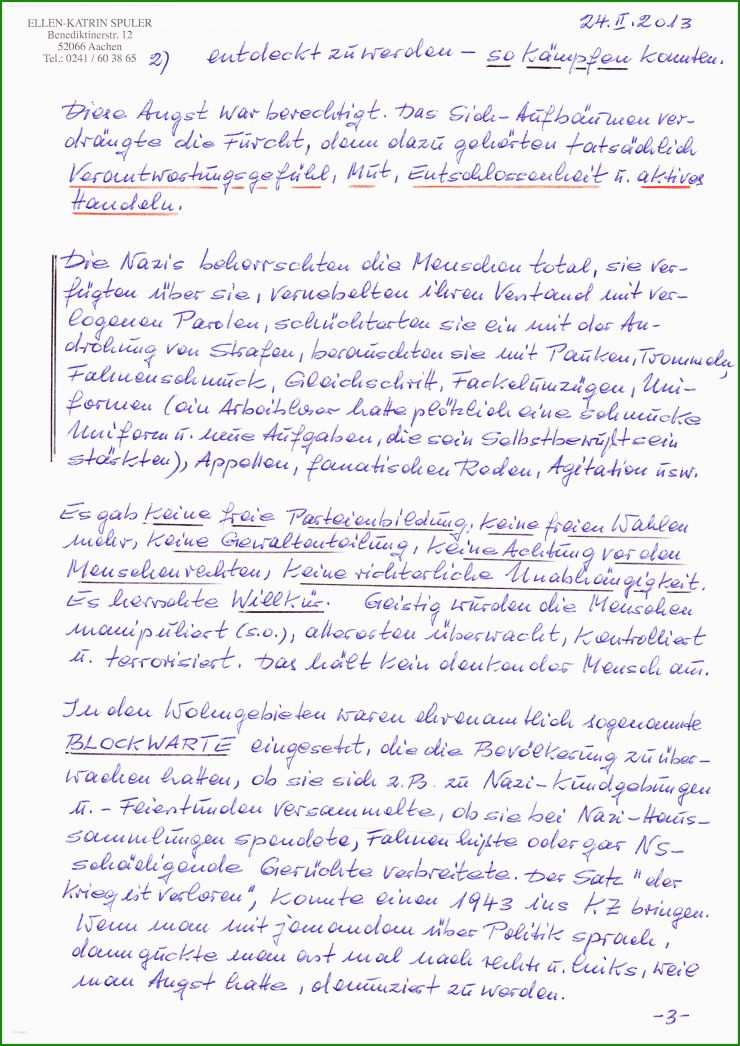 ELLEN-KATRIN SPULER
Benediktinerstr. 12
52066 Aachen
Tel.: 0241 / 60 38 65
24.II.2013
2) entdeckt zu werden – so kämpfen konnten.
Diese Angst war berechtigt. Das Sich-Aufbäumen ver-
drängte die Furcht, denn dazu gehörten tatsächlich
Verantwortungsgefühl, Mut, Entschlossenheit u. aktives
Handeln.
Die Nazis beherrschten die Menschen total, sie ver-
fügten über sie, vernebelten ihren Verstand mit ver-
logenen Parolen, schüchterten sie ein mit der An-
drohung von Strafen, berauschten sie mit Pauken, Trommeln,
Fahnenschmuck, Gleichschritt, Fackelumzügen, Uni-
formen (ein Arbeitsloser hatte plötzlich eine schmucke
Uniform u. neue Aufgaben, die sein Selbstbewußtsein
stärkten), Appellen, fanatischen Reden, Agitation usw.
Es gab keine freie Parteienbildung, keine freien Wahlen
mehr, keine Gewaltenteilung, keine Achtung vor den
Menschenrechten, keine richterliche Unabhängigkeit.
Es herrschte Willkür. Geistig wurden die Menschen
manipuliert (s.o.), allerorten überwacht, kontrolliert
u. terrorisiert. Das hält kein denkender Mensch aus.
In den Wohngebieten waren ehrenamtlich sogenannte
BLOCKWARTE eingesetzt, die die Bevölkerung zu über-
wachen hatten, ob sie sich z.B. zu Nazi-Kundgebungen
u. -Feierstunden versammelte, ob sie bei Nazi-Haus-
sammlungen spendete, Fahnen hißte oder gar NS-
schädigende Gerüchte verbreitete. Der Satz "der
Krieg ist verloren", konnte einen 1943 ins KZ bringen.
Wenn man mit jemandem über Politik sprach,
dann guckte man erst mal nach rechts u. links, weil
man Angst hatte, denunziert zu werden.
-3-